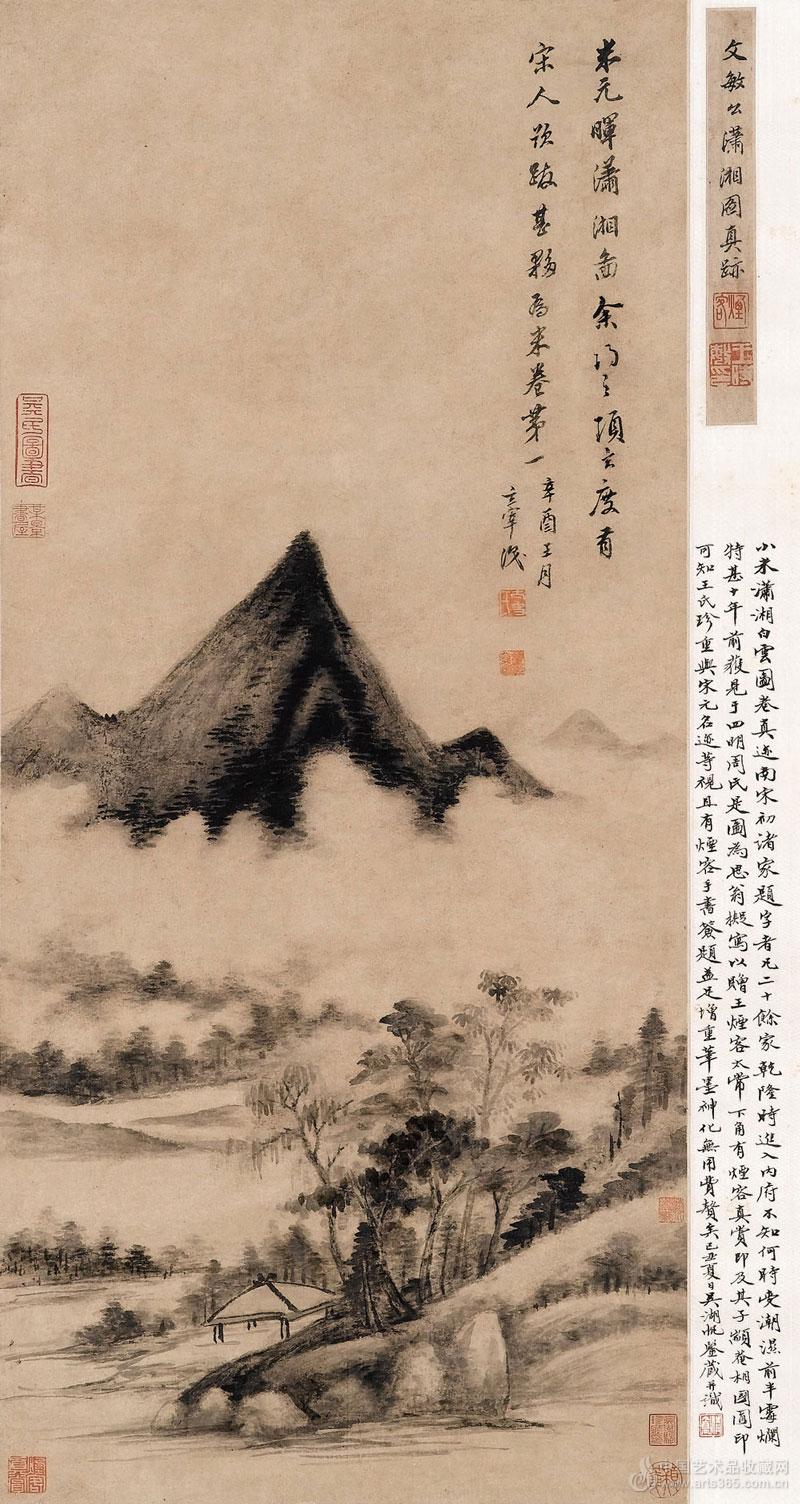 米元暉瀟湘圖余得之項玄度有
宋人題跋甚夥為米卷第一
辛酉五月
玄宰識
文敏公瀟湘圖真跡
煙客
小米瀟湘白雲圖卷真迹南宋初諸家題字者凡二十餘家乾隆時進入內府不知何時受潮濕前半霉爛
特甚十年前獲見于四明周氏是圖為思翁擬寫以贈王煙客太常下角有煙客真賞印及其子顓菴相國圓印
可知王氏珍重與宋元名迹等視且有煙客手書簽題益足增重筆墨神化無用費贅矣己丑夏日吳湖帆鑒藏并識
吳氏圖書
中国艺术品收藏网
www.arts365.com